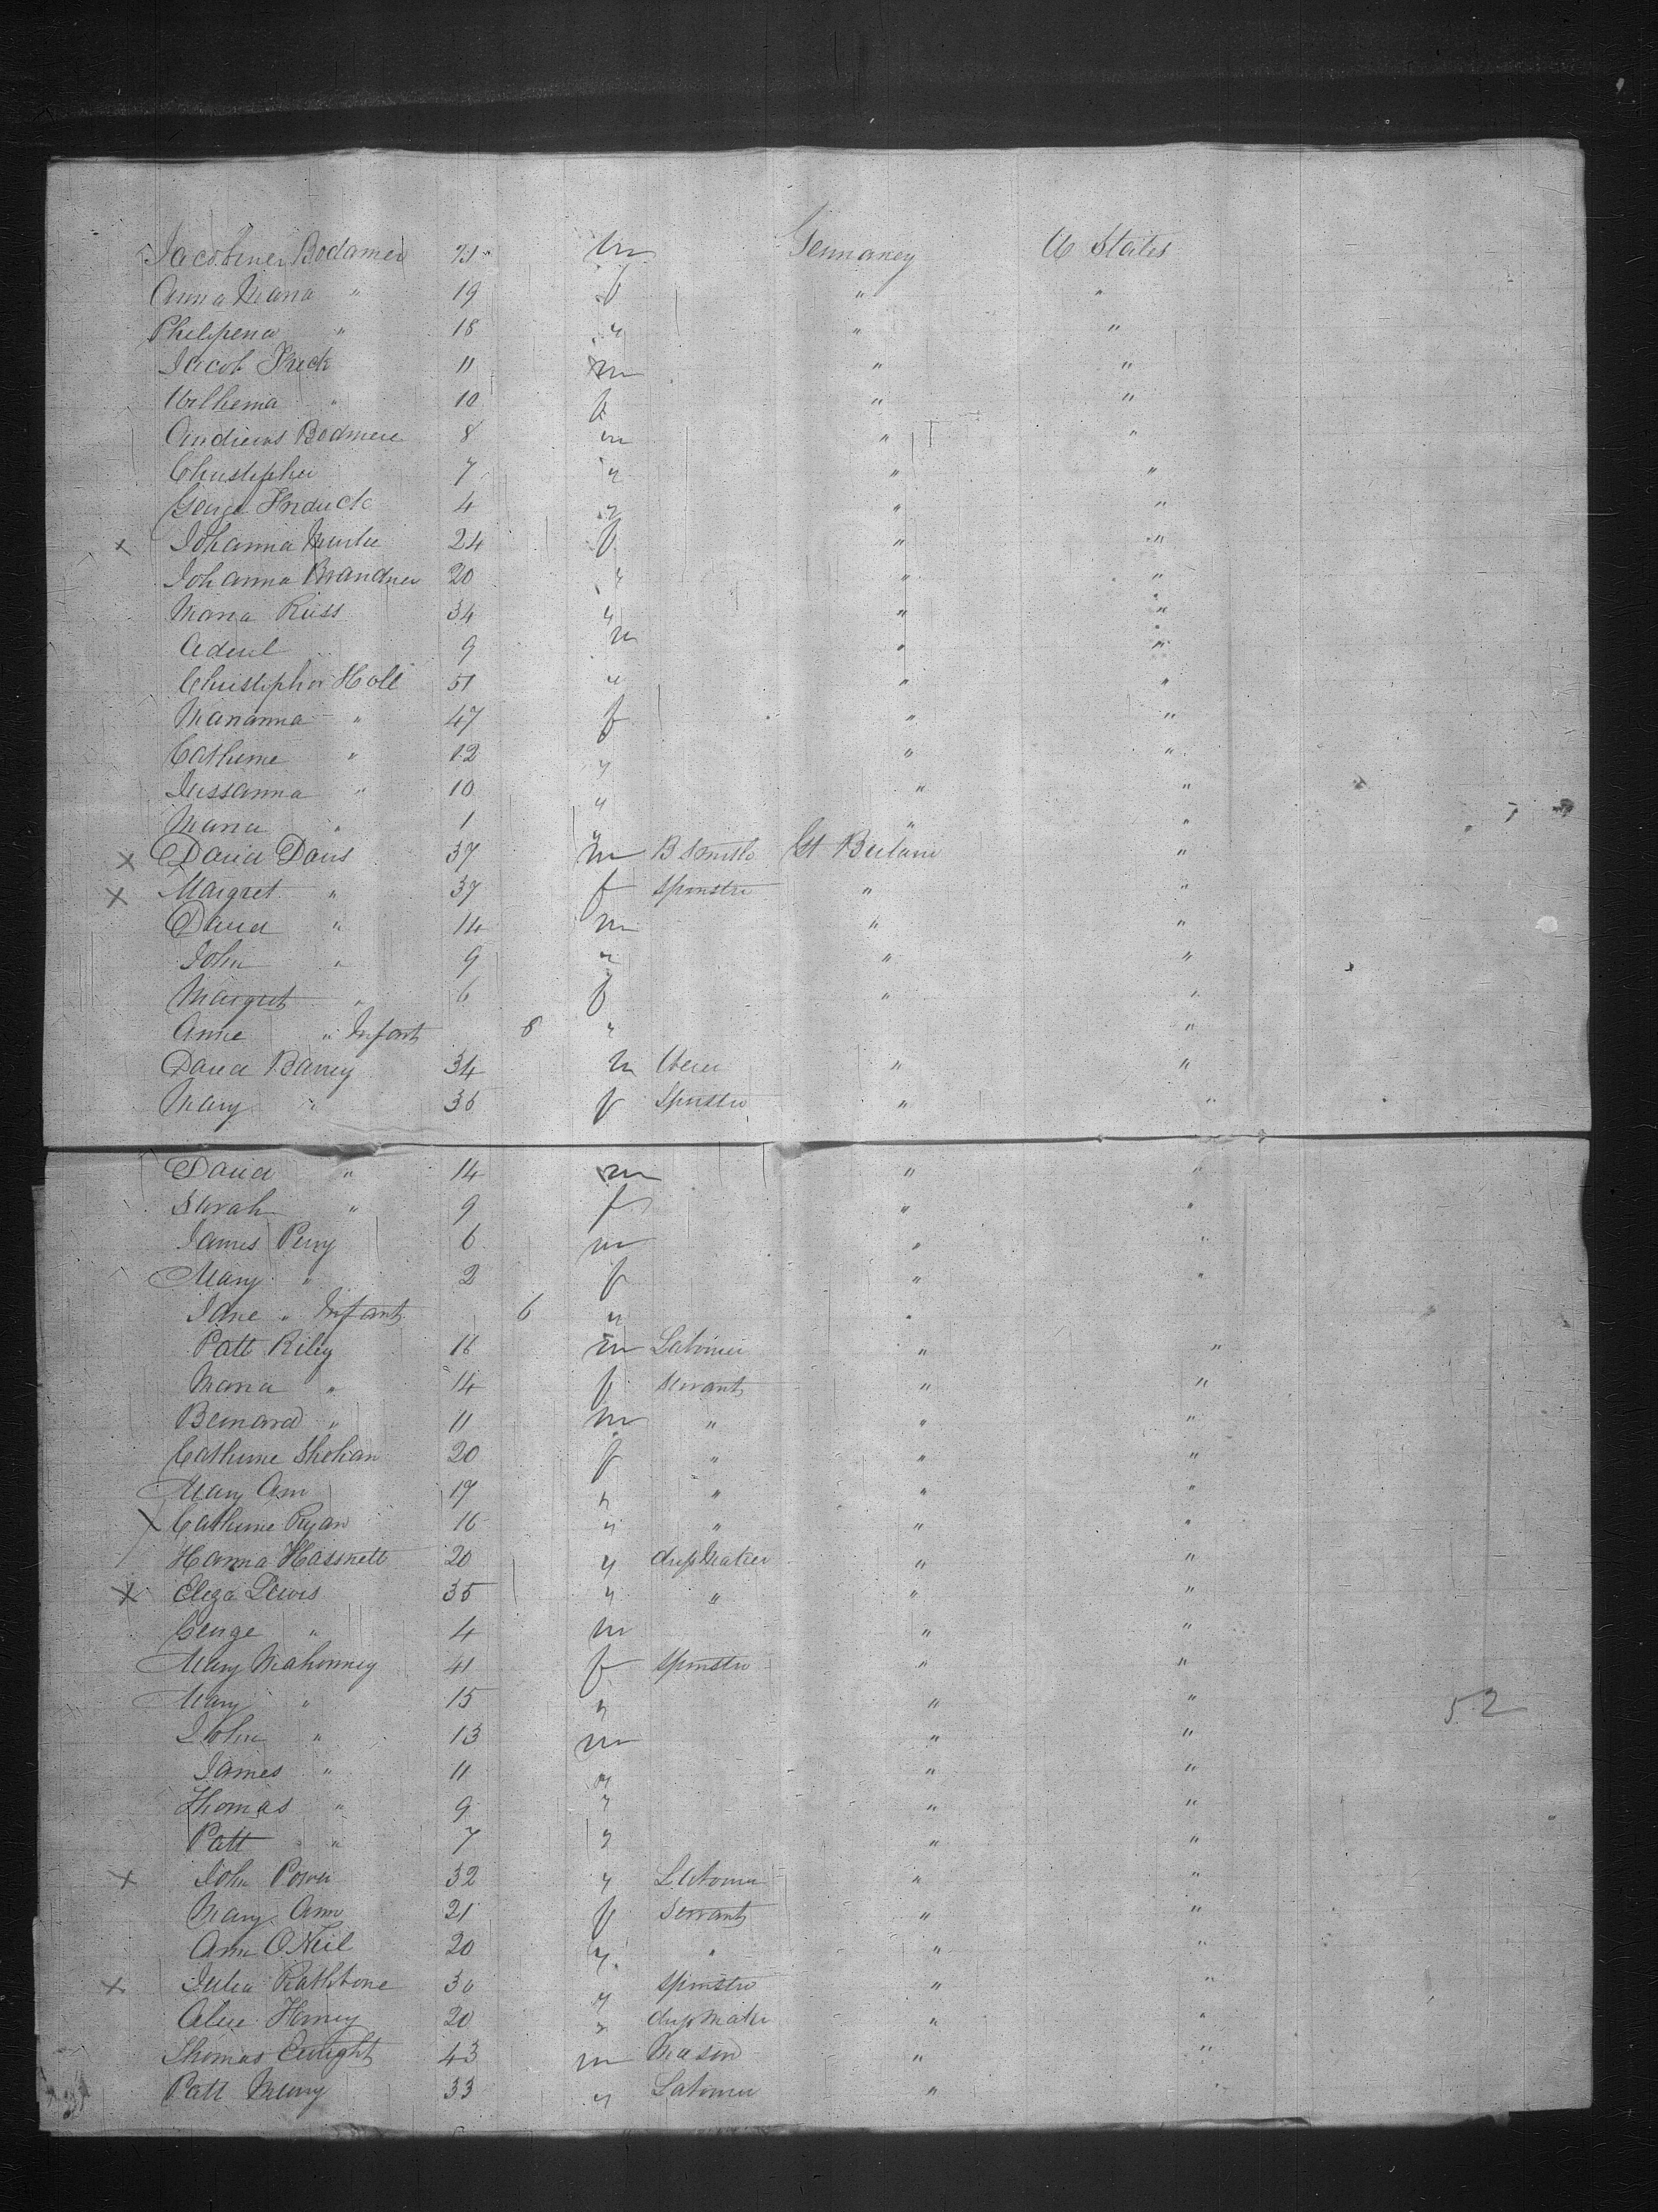 Jacobiner Bodamer 21 m Germaney U States
Anna Maria " 19 f " "
Philipena " 18 " " "
Jacob Frick 11 m " "
Wilhema " 10 f " "
Andrews Bodmere 8 m " "
Christipher 7 " " "
George 4 " " "
x Johanna 24 f " "
Johanna Brandner 20 " " "
Maria Russ 34 " " "
9 m " "
Christipher Holl 51 " " "
Marianna " 47 f " "
Catherine " 12 " " "
Jussanna " 10 " " "
Maria " 1 " " "
x David Davis 37 m B Smith Gt Britain "
x Margret " 37 f Spinster " "
David " 14 m " "
John " 9 " " "
Margret " 6 f " "
Anne " Infant 8 " "
David Barrey 34 m " "
Mary " 35 f Spinster " "
David " 14 m " "
Sarah " 9 f " "
James Perry 6 m " "
Mary " 2 f " "
Jane " Infant 6 " "
Patt Riley 18 m Labourer " "
Maria " 14 f Servant " "
Bernard " 11 m " " "
Catherine Shehan 20 f " " "
Mary Ann 17 " " " "
x Catherine Ryan 16 " " " "
Hanna Hassnett 20 " dressmaker " "
x Eliza Lewis 35 " " " "
George " 4 m " "
Mary Mahonney 41 f Spinster " "
Mary " 15 " " " 52
John " 13 m " "
James " 11 " " "
Thomas " 9 " " "
Patt " 7 " " "
x John Power 32 " Labourer " "
Mary Ann 21 f Servant " "
Ann O Neil 20 " " " "
x Julia Rathbone 30 " Spinster " "
Alice Harney 20 " dressmaker " "
Thomas Enright 43 m Mason " "
Patt Murry 33 " Labourer " "